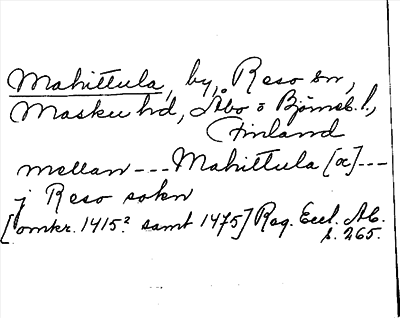 Mahittula, by, Reso sn,
Masku hd, Åbo o Björneb. l.,
Finland
mellan --- Mahittula [æ] ---
j Reso sokn
[omkr. 1415? samt 1475] Reg. Eccl. Ab.
s. 265.